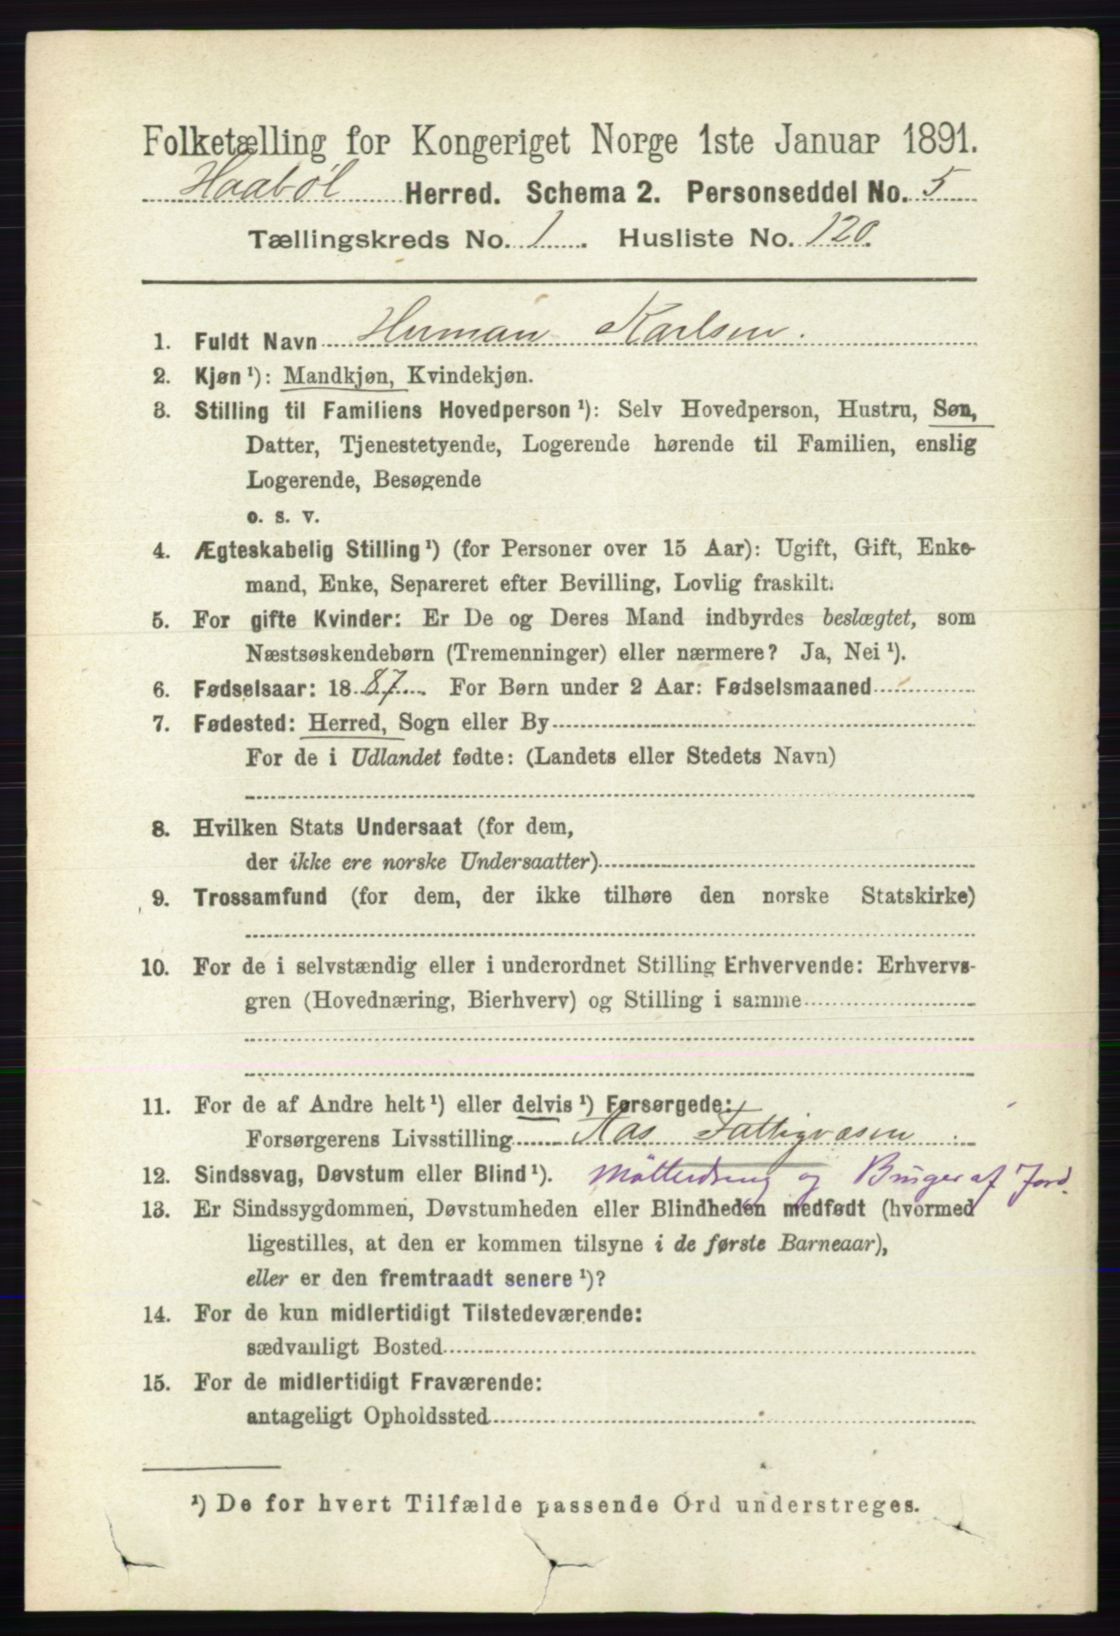 Folketælling for Kongeriget Norge 1ste Januar 1891.
Haabøl Herred. Schema 2. Personseddel No. 5
Tællingskreds No. 1. Husliste No. 120.
1. Fuldt Navn Herman Karlsen.
2. Kjøn ¹): Mandkjøn, Kvindekjøn.
3. Stilling til Familiens Hovedperson ¹): Selv Hovedperson, Hustru, Søn,
Datter, Tjenestetyende, Logerende hørende til Familien, enslig
Logerende, Besøgende
o. s. v.
4. Ægteskabelig Stilling ¹) (for Personer over 15 Aar): Ugift, Gift, Enke-
mand, Enke, Separeret efter Bevilling, Lovlig fraskilt.
5. For gifte Kvinder: Er De og Deres Mand indbyrdes beslægtet, som
Næstsøskendebørn (Tremenninger) eller nærmere? Ja, Nei ¹).
6. Fødselsaar: 1887. For Børn under 2 Aar: Fødselsmaaned
7. Fødested: Herred, Sogn eller By
For de i Udlandet fødte: (Landets eller Stedets Navn)
8. Hvilken Stats Undersaat (for dem,
der ikke ere norske Undersaatter)
9. Trossamfund (for dem, der ikke tilhøre den norske Statskirke)
10. For de i selvstændig eller i underordnet Stilling Erhvervende: Erhvervs-
gren (Hovednæring, Bierhverv) og Stilling i samme
11. For de af Andre helt ¹) eller delvis ¹) Forsørgede:
Forsørgerens Livsstilling Aas Fattigvæsen
12. Sindssvag, Døvstum eller Blind ¹). Mølledreng og Bruger af Jord.
13. Er Sindssygdommen, Døvstumheden eller Blindheden medfødt (hvormed
ligestilles, at den er kommen tilsyne i de første Barneaar),
eller er den fremtraadt senere ¹)?
14. For de kun midlertidigt Tilstedeværende:
sædvanligt Bosted
15. For de midlertidigt Fraværende:
antageligt Opholdssted
¹) De for hvert Tilfælde passende Ord understreges.